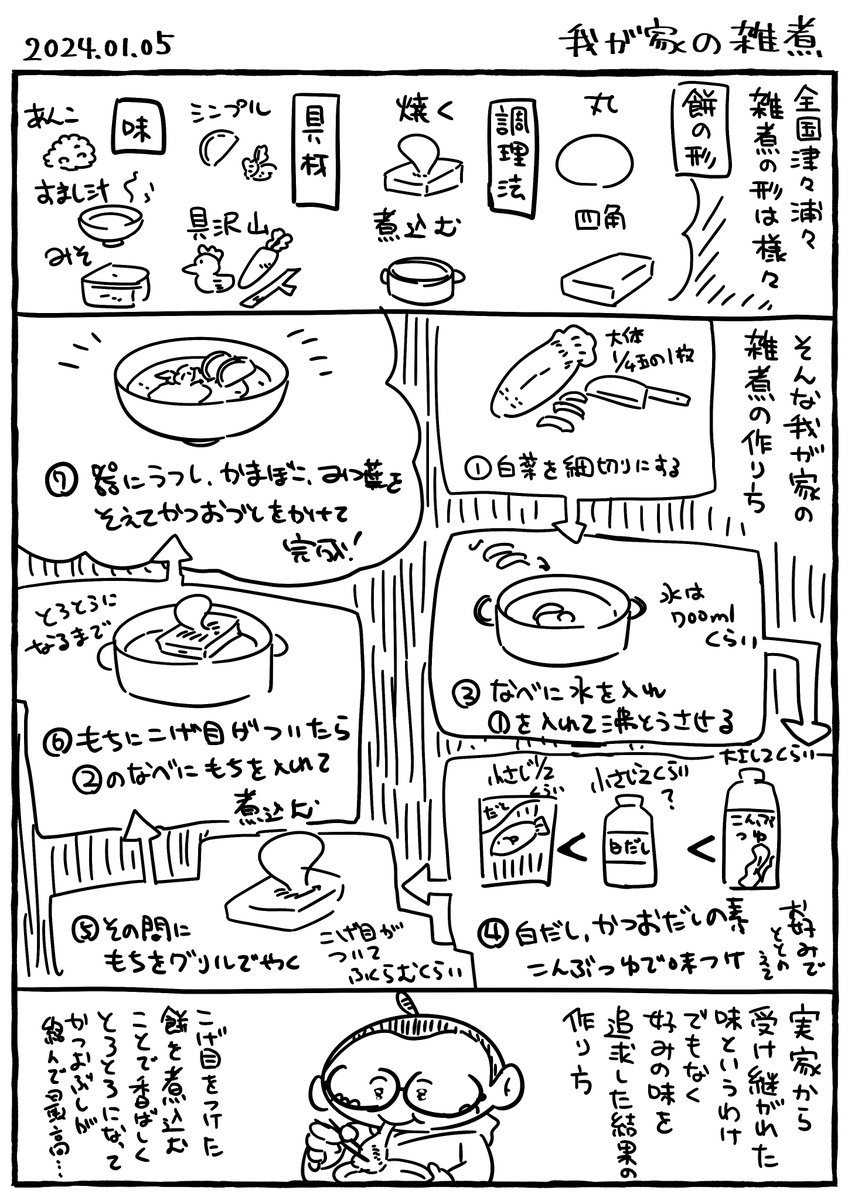 2024.01.05
我が家の雑煮
全国津々浦々
雑煮の形は様々
餅の形
丸
四角
調理法
焼く
煮込む
具材
シンプル
具沢山
味
あんこ
すまし汁
みそ
そんな我が家の
雑煮の作り方
大体
1/4玉の1枚
①白菜を細切りにする
水は
700ml
くらい
③なべに水を入れ
①を入れて沸とうさせる
大さじ2くらい
こんぶ
つゆ
<
小さじ2くらい
?
白だし
<
小さじ1/2
くらい
だし
④白だし、かつおだしの素
こんぶつゆで味つけ
お好みで
ととのえて
⑤その間に
もちをグリルでやく
こげ目が
ついて
ふくらむくらい
とろとろに
なるまで
⑥もちにこげ目がついたら
②のなべにもちを入れて
煮込む
⑦器にうつし、かまぼこ、みつ葉を
そえてかつおぶしをかけて
完成!
実家から
受け継がれた
味というわけ
でもなく
好みの味を
追求した結果の
作り方
こげ目をつけた
餅を煮込む
ことで香ばしく
とろとろになって
かつおぶしが
絡んで最高…